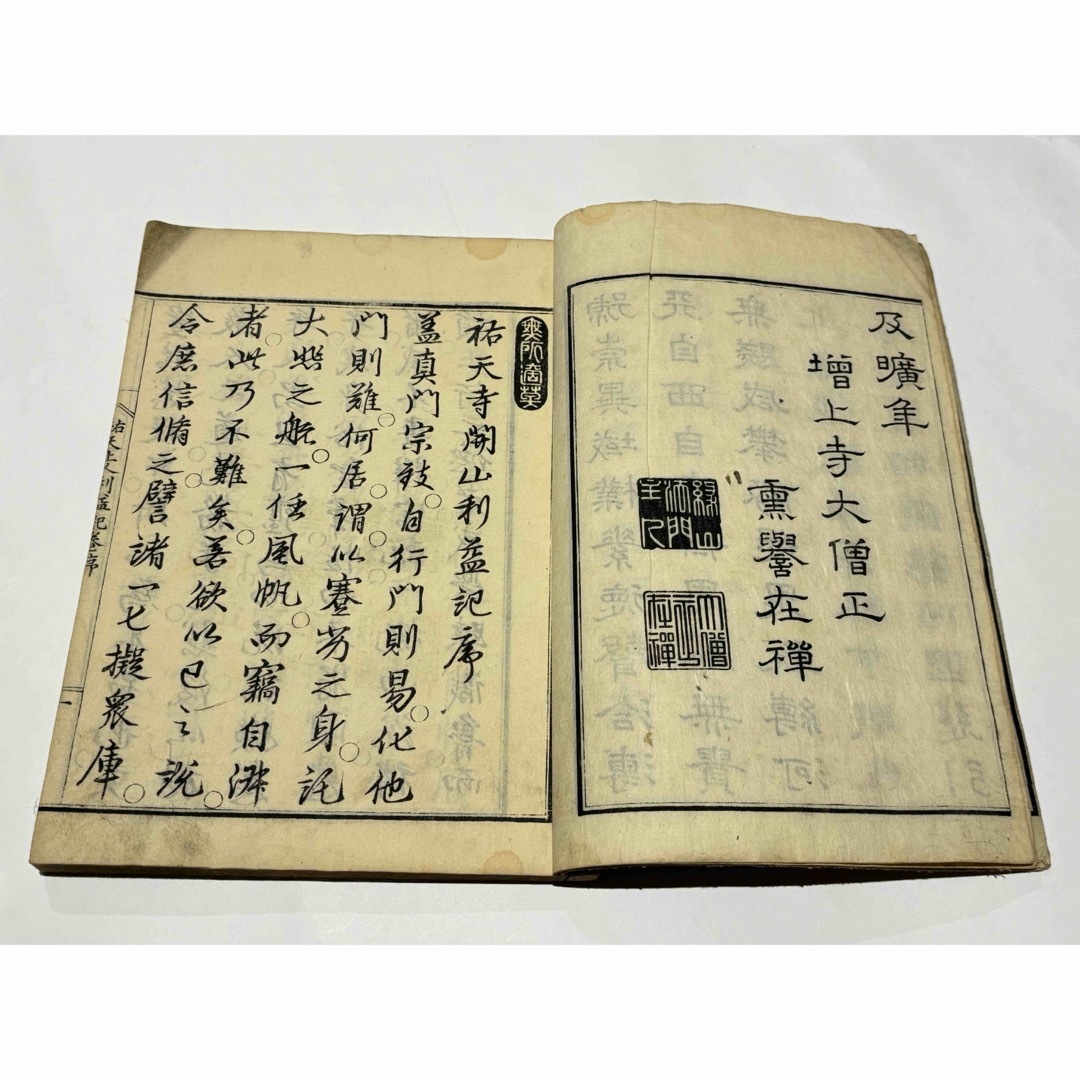 及曠年
增上寺大僧正
熏譽在禪
緣山
法門
主人
大僧
正
在禪
無所適莫
祐天寺開山利益記序
蓋真門宗致自行門則易化他
門則難何居謂以蹇劣之身託
大悲之船一任風帆而竊自濟
者此乃不難矣善欲以已之說
令庶信脩之譬諸一七擬眾庫